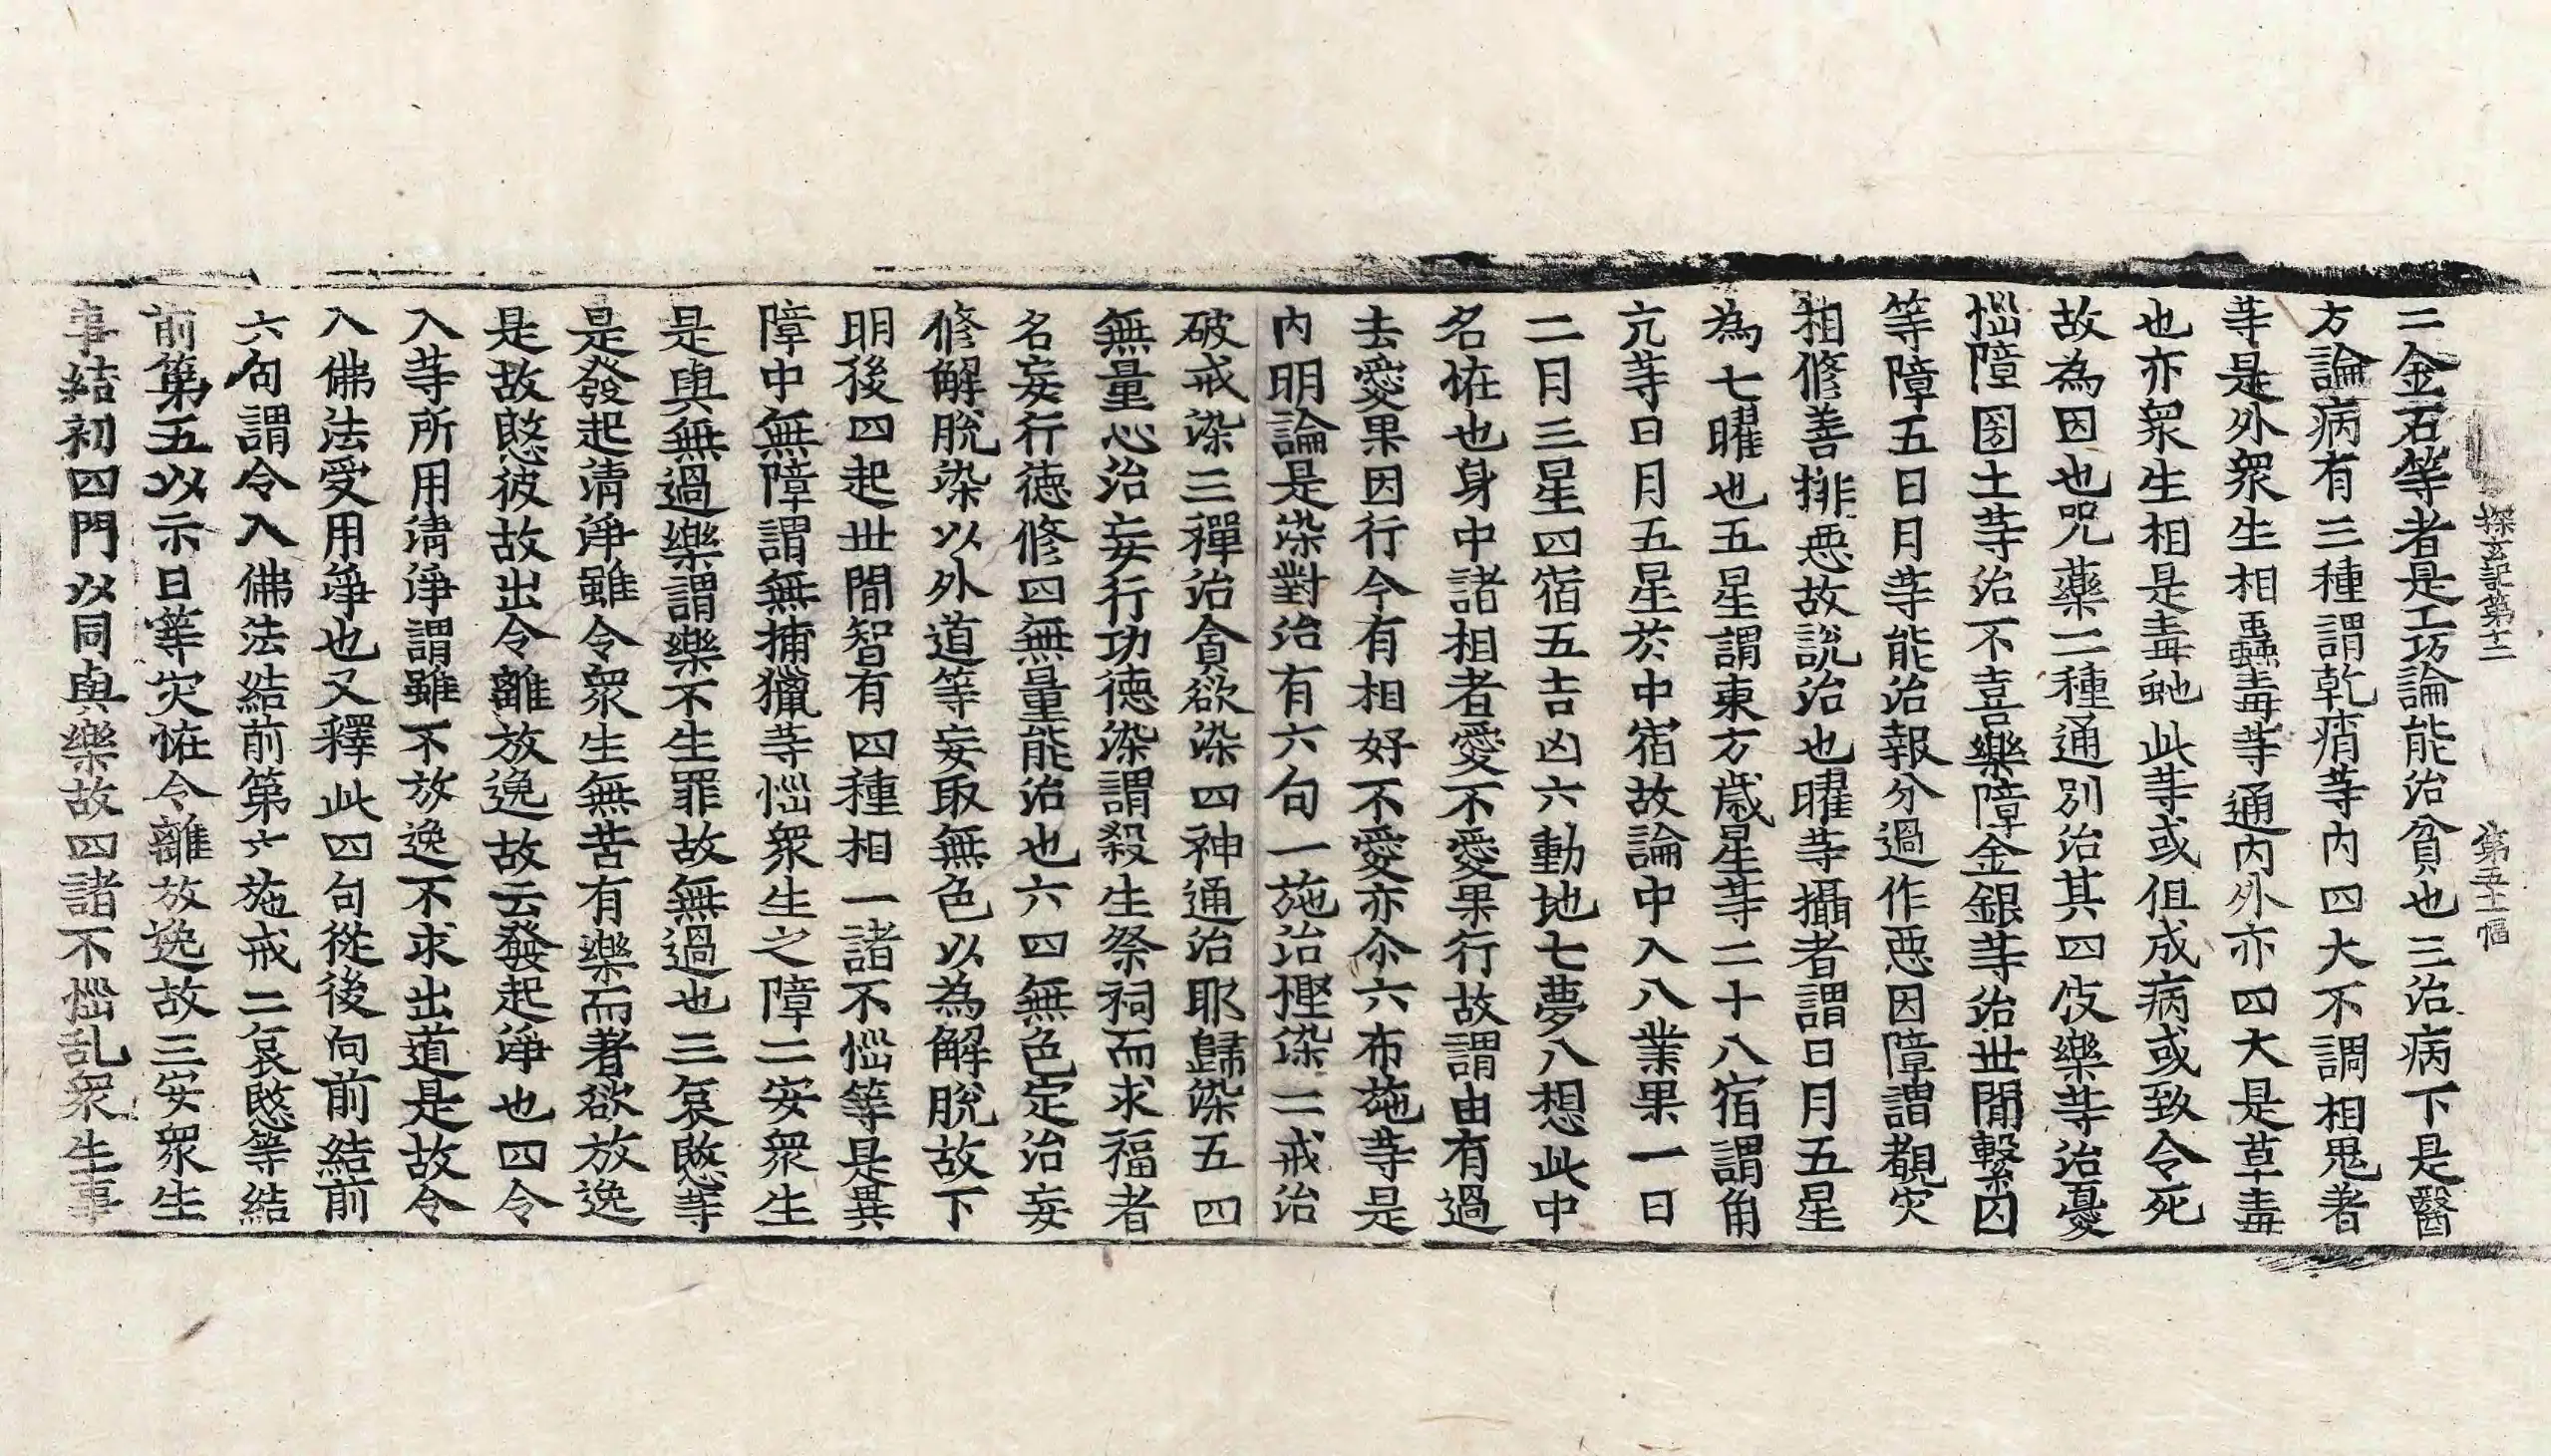 探玄記第十二 第五十一幅
二金石等者是工巧論能治貧也三治病下是醫
方論病有三種謂乾痟等內四大不調相鬼著
等是外衆生相蠱毒等通內外亦四大是草毒
也亦衆生相是毒虵此等或但成病或致令死
故為因也呪藥二種通別治其四伎樂等治憂
惱障圂土等治不喜樂障金銀等治世間繫囚
等障五日月等能治報分過作惡因障謂覩灾
相修善排惡故說治也曜等攝者謂日月五星
為七曜也五星謂東方歲星等二十八宿謂角
亢等日月五星於中宿故論中入八業果一日
二月三星四宿五吉凶六動地七夢八想此中
名恠也身中諸相者愛不愛果行故謂由有過
去愛果因行今有相好不愛亦尒六布施等是
內明論是染對治有六句一施治慳染二戒治
破戒染三禪治貪欲染四神通治耶歸染五四
無量心治妄行功德染謂殺生祭祠而求福者
名妄行德修四無量能治也六四無色定治妄
修解脫染以外道等妄取無色以為解脫故下
明後四起世間智有四種相一諸不惱等是異
障中無障謂無捕獵等惱衆生之障二安衆生
是與無過樂謂樂不生罪故無過也三哀愍等
是發起清淨雖令衆生無苦有樂而著欲放逸
是故愍彼故出令離放逸故云發起淨也四令
入等所用清淨謂雖不放逸不求出道是故令
入佛法受用淨也又釋此四句從後向前結前
六句謂令入佛法結前第六施戒二哀愍等結
前第五以示日等灾恠令離放逸故三安衆生
事結初四門以同與樂故四諸不惱乱衆生事